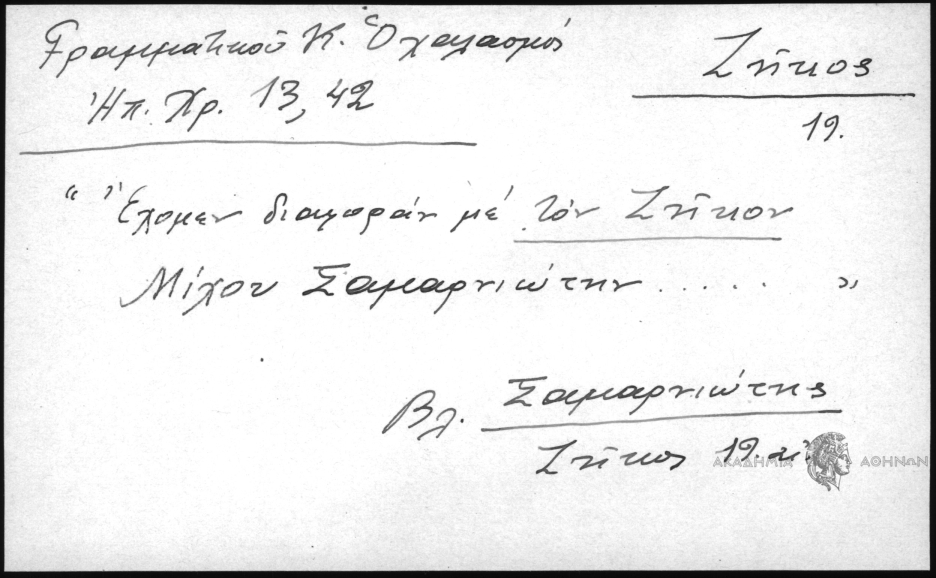 Γραμματικοῦ Κ. Ὁ χαλασμός
Ἠπ. Χρ. 13, 42
Ζῆκος
19.
"Ἔχομεν διαφοράν μέ τόν Ζῆκον
Μίχου Σαμαρνιώτην ..... "
Βλ. Σαμαρνιώτης
Ζῆκος 19 αἰ.
ΑΚΑΔΗΜΙΑ ΑΘΗΝΩΝ